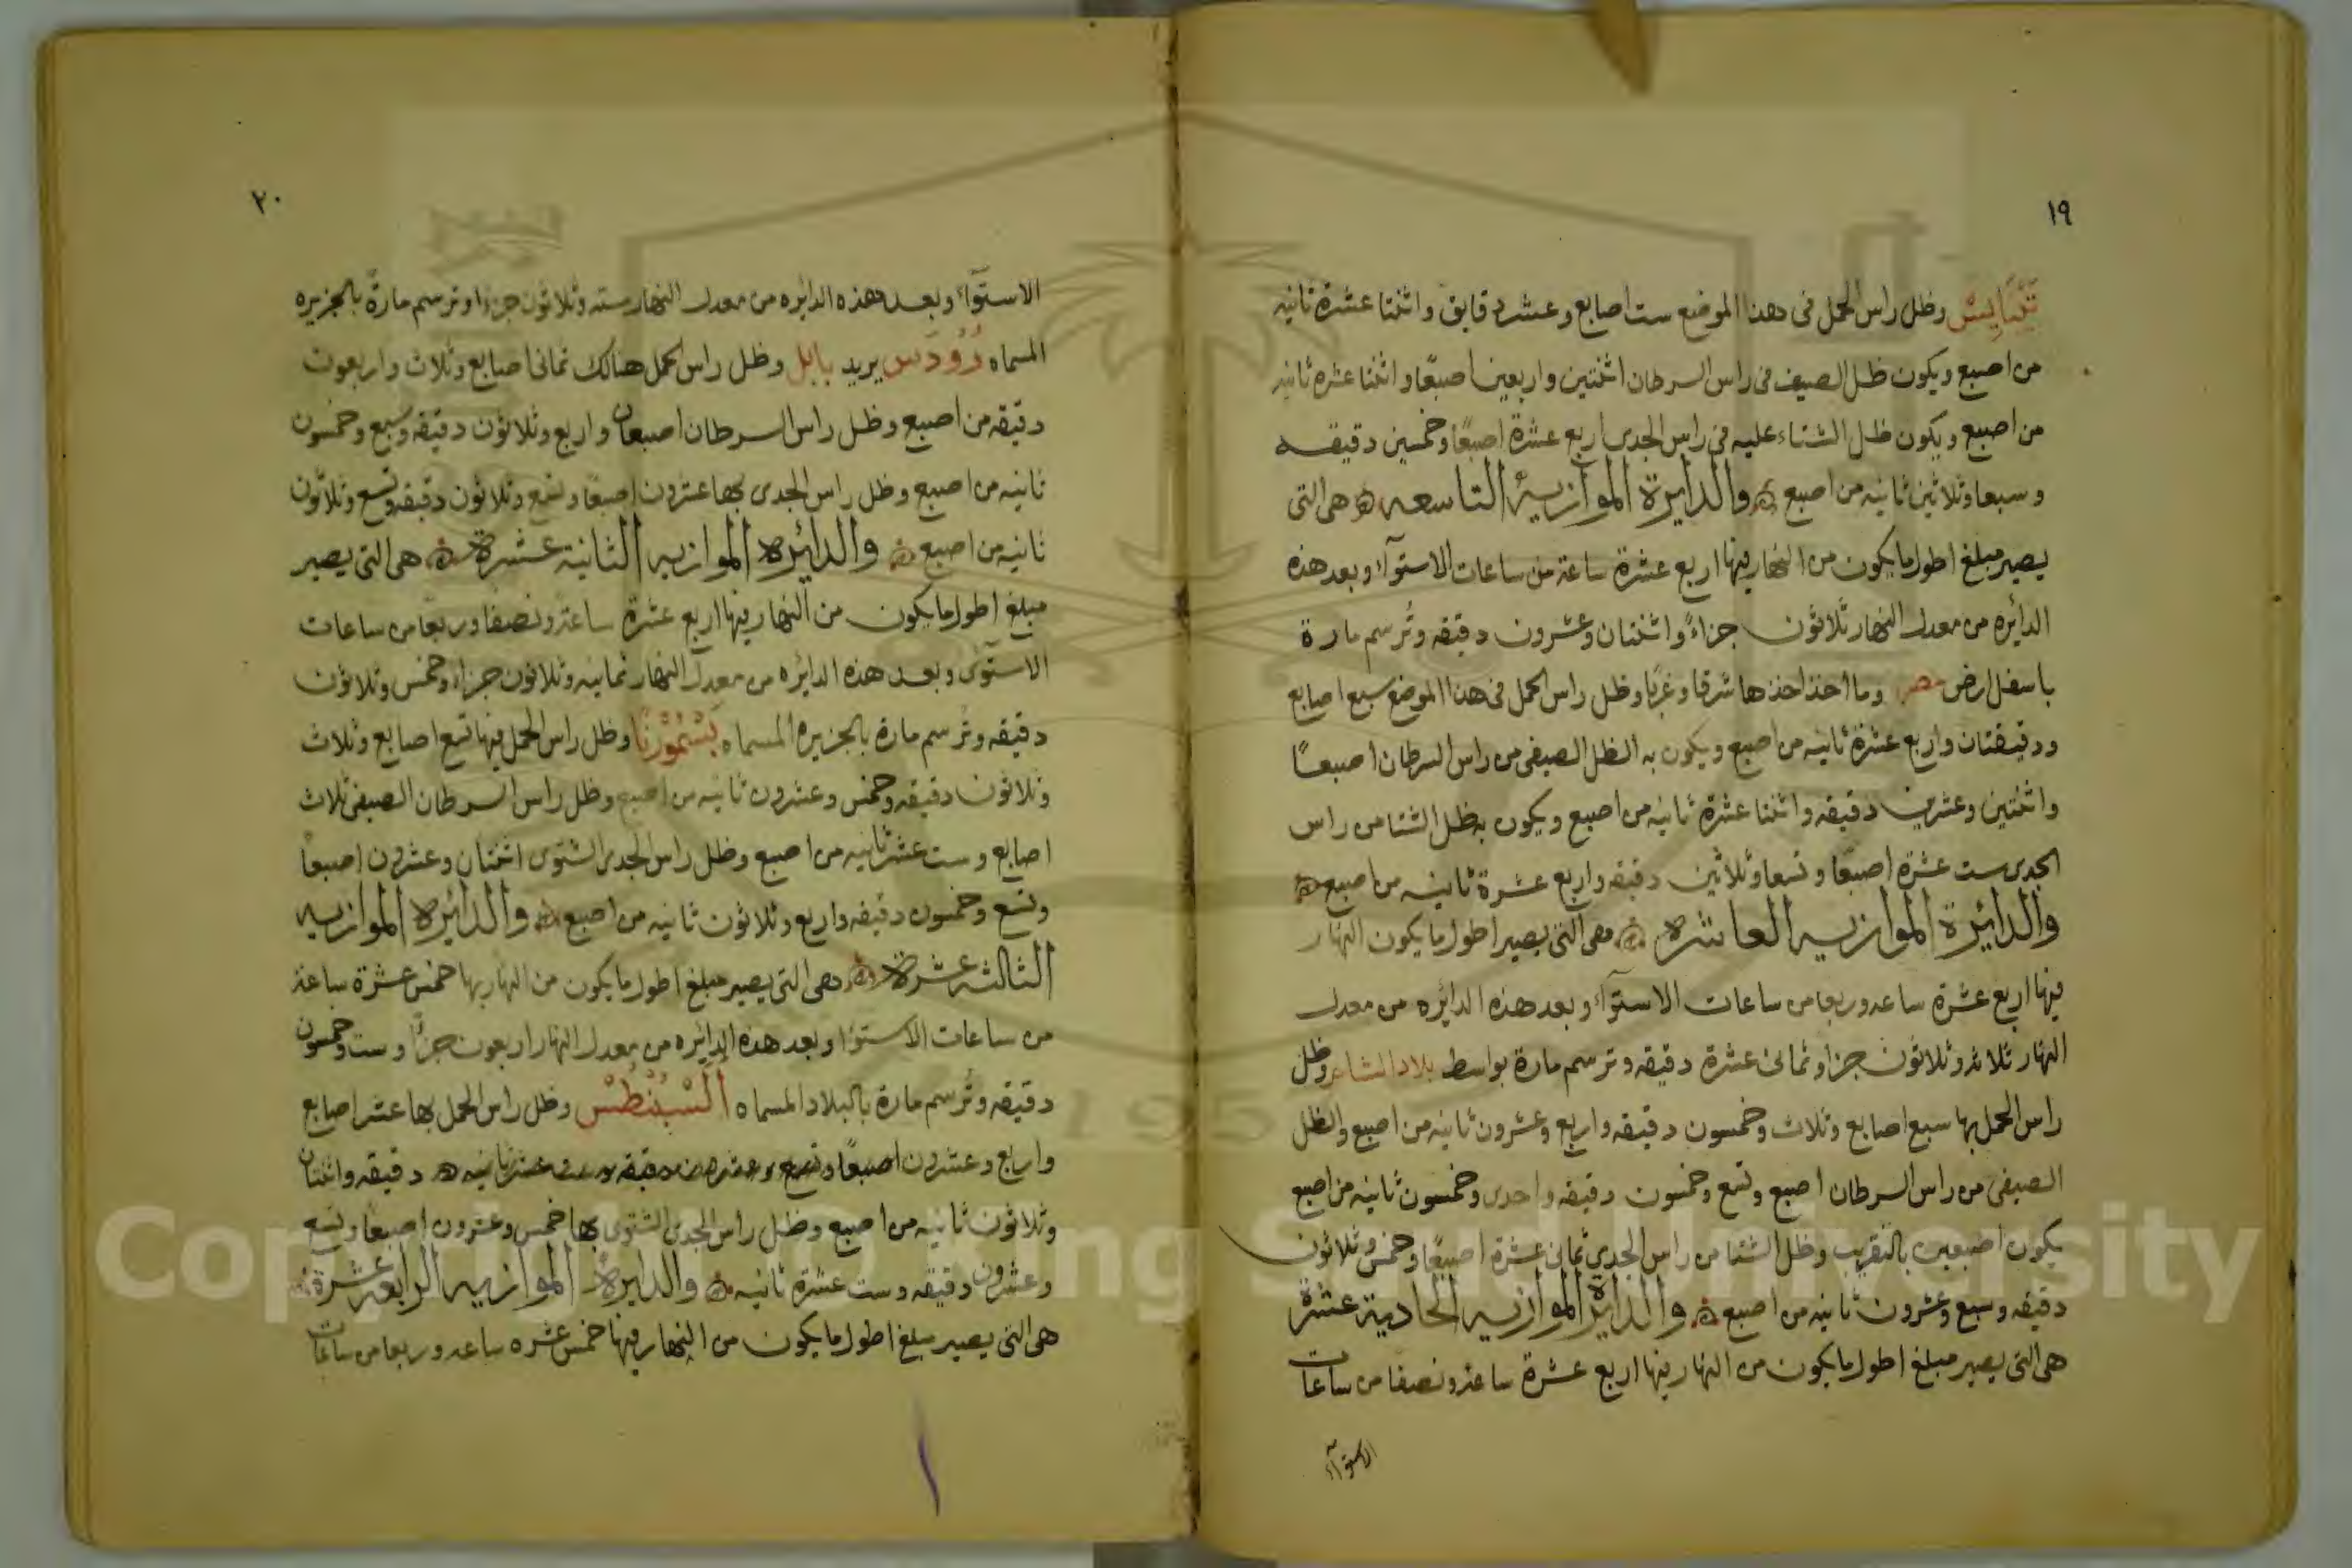 ١٩
تَبَايِسْ وظل راس الحمل فى هذا الموضع ست اصابع وعشر دقايق واثنتا عشرة ثانيه
من اصبع ويكون ظل الصيف فى راس السرطان اثنتين واربعين اصبعًا واثنتا عشره ثانيه
من اصبع ويكون ظل الشتاء عليه فى راس الجدى اربع عشرة اصبعًا وخمسين دقيقه
وسبعا وثلاثين ثانيه من اصبع والدايرة الموازيهُ التاسعه هى التى
يصير مبلغ اطول ما يكون من النهار فيها اربع عشرة ساعة من ساعات الاستوآء وبعد هذه
الدائره من معدل النهار ثلاثون جزاءً واثنتان وعشرون دقيقه وتُرسم مارة
باسفل ارض مصر وما اخذ اخذها شرقا وغربًا وظل راس الحمل فى هذا الموضع سبع اصابع
ودقيقتان واربع عشرة ثانيه من اصبع ويكون به الظل الصيفى من راس السرطان اصبعًا
واثنتين وعشرين دقيقه واثنتا عشرة ثانيه من اصبع ويكون به ظل الشتا من راس
الجدى ست عشرة اصبعًا وتسعا وثلاثين دقيقه واربع عشرة ثانيه من اصبع
والدائرة الموازيه العاشره وهى التى يصير اطول ما يكون النهار
فيها اربع عشرة ساعه وربعا من ساعات الاستوآء وبعد هذه الدائره من معدل
النهار ثلاثه وثلاثون جزا وثمانى عشرة دقيقه وترسم مارة بواسط بلاد الشام وظل
راس الحمل بها سبع اصابع وثلاث وخمسون دقيقه واربع وعشرون ثانيه من اصبع والظل
الصيفى من راس السرطان اصبع وتسع وخمسون دقيقه واحدى وخمسون ثانيه من اصبع
يكون اصبعين بالتقريب وظل الشتا من راس الجدي ثمانى عشرة اصبعًا وخمس وثلاثون
دقيقه وسبع وعشرون ثانيه من اصبع والدايرة الموازيه الحادية عشرة
هى التى يصير مبلغ اطول ما يكون من النهار فيها اربع عشرة ساعة ونصفا من ساعات
الاستوآء
٢٠
الاستوَآء وبعد هذه الدائره من معدل النهار سته وثلاثون جزءا وترسم مارة بالجزيره
المسماه رُوْدَس يريد بابل وظل راس الحمل هنالك ثمانى اصابع وثلاث واربعون
دقيقه من اصبع وظل راس السرطان اصبعان واربع وثلاثون دقيقه وسبع وخمسون
ثانيه من اصبع وظل راس الجدى بها عشرون اصبعًا وتسع وثلاثون دقيقه وتسع وثلاثون
ثانيه من اصبع والدائره الموازيه الثانية عشرة هى التى يصير
مبلغ اطول ما يكون من النهار فيها اربع عشرة ساعة ونصفًا وربعًا من ساعات
الاستوى وبعد هذه الدائره من معدل النهار ثمانيه وثلاثون جزاء وخمس وثلاثون
دقيقه وتُرسم مارة بالجزيره المسماه وظل راس الحمل فيها تسع اصابع وثلاث
وثلاثون دقيقه وخمس وعشرون ثانيه من اصبع وظل راس السرطان الصيفى ثلاث
اصابع وست عشر ثانيه من اصبع وظل راس الجدى الشتوى اثنتان وعشرون اصبعاً
وتسع وخمسون دقيقه واربع وثلاثون ثانيه من اصبع والدائره الموازيه
الثالثه عشرة وهى التى يصير مبلغ اطول ما يكون من النهار بها خمس عشرة ساعة
من ساعات الاستوا وبعد هذه الدائره من معدل النهار اربعون جزأً وست وخمسون
دقيقه وتُرسم مارة بالبلاد المسماه وظل راس الحمل بها عشر اصابع
واربع وعشرون اصبعًا وتسع وعشرون دقيقه وست عشر ثانيه دقيقه واثنتان
وثلاثون ثانيه من اصبع وظل راس الجدى الشتوى بها خمس وعشرون اصبعًا وتسع
وعشرون دقيقه وست عشرة ثانيه والدايرة الموازيه الرابعه عشرة
هى التى يصير مبلغ اطول ما يكون من النهار فيها خمس عشره ساعه وربعا من ساعات
Copyright © King Saud University
195